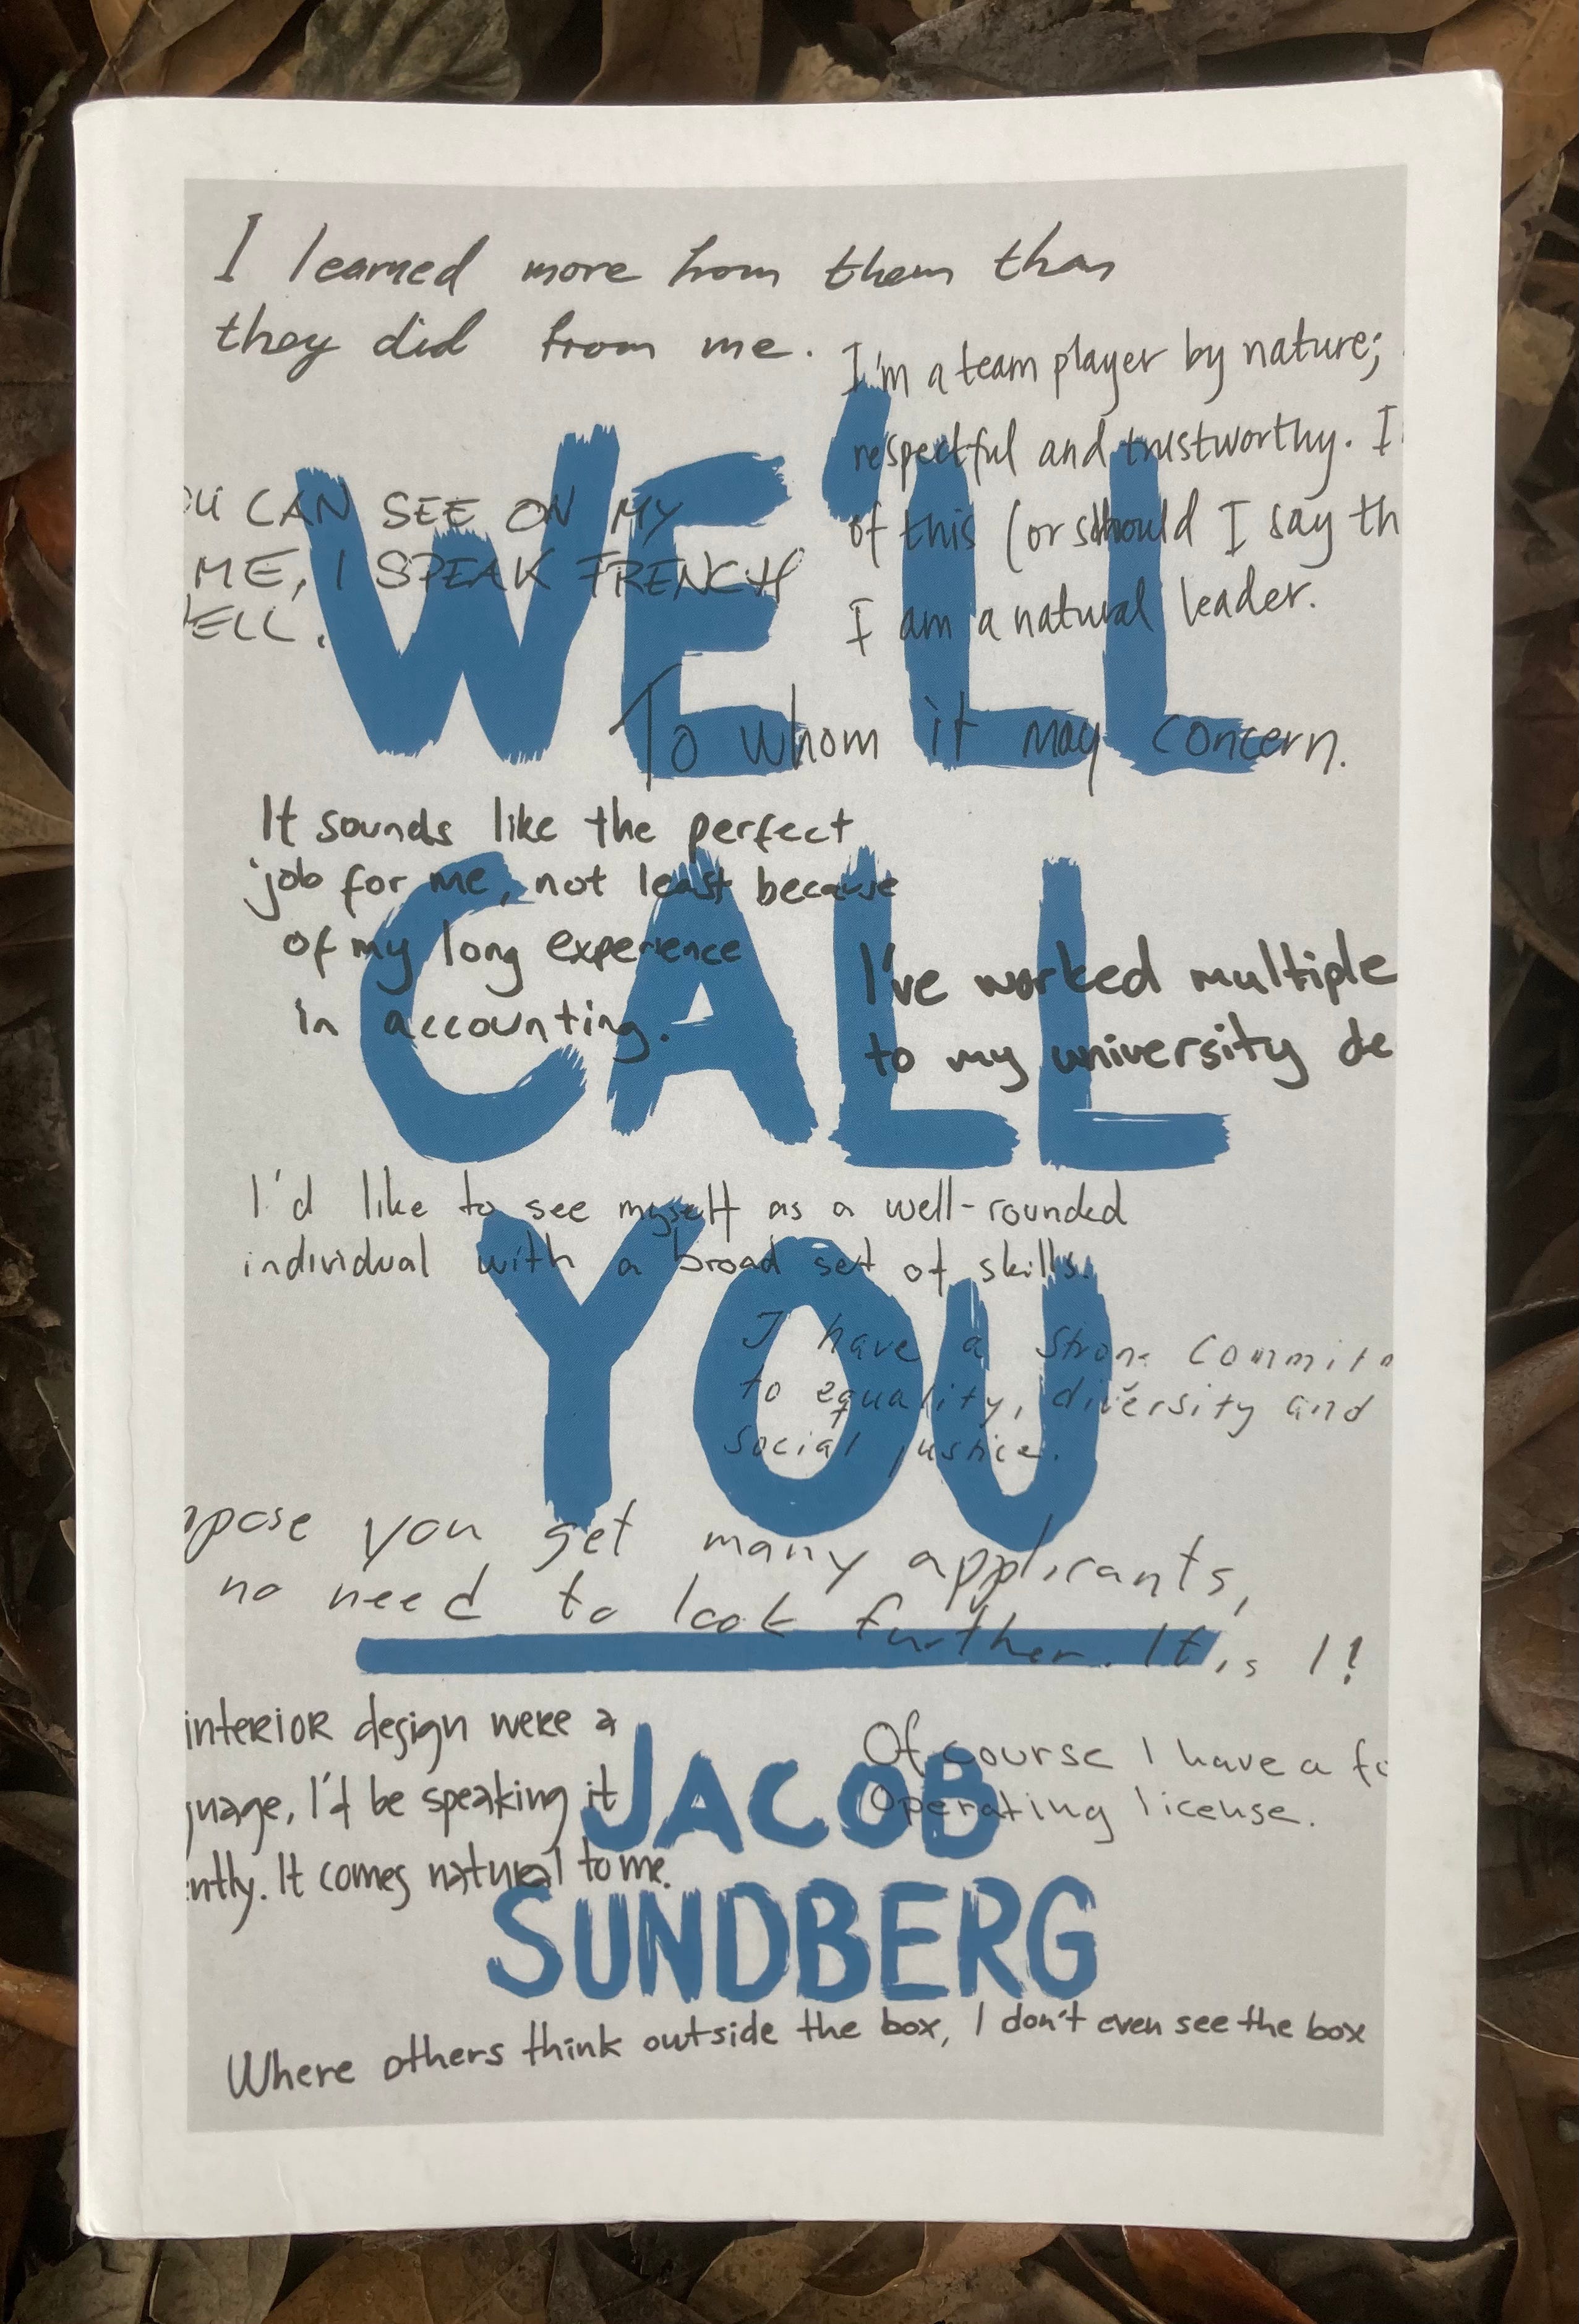 I learned more from them than
they did from me.
I'm a team player by nature;
respectful and trustworthy. I
of this (or should I say th
I am a natural leader.
OU CAN SEE ON MY
ME, I SPEAK FRENCH
ELL.
WE'LL
To whom it may concern.
It sounds like the perfect
job for me, not least because
of my long experience
in accounting.
CALL
I've worked multiple
to my university de
I'd like to see myself as a well-rounded
individual with a broad set of skills.
YOU
I have a strong commit
to equality, diversity and
social justice.
pose you get many applicants,
no need to look further. It is I!
interior design were a
guage, I'd be speaking it
ntly. It comes natural to me.
Of course I have a fo
Operating license.
JACOB
SUNDBERG
Where others think outside the box, I don't even see the box